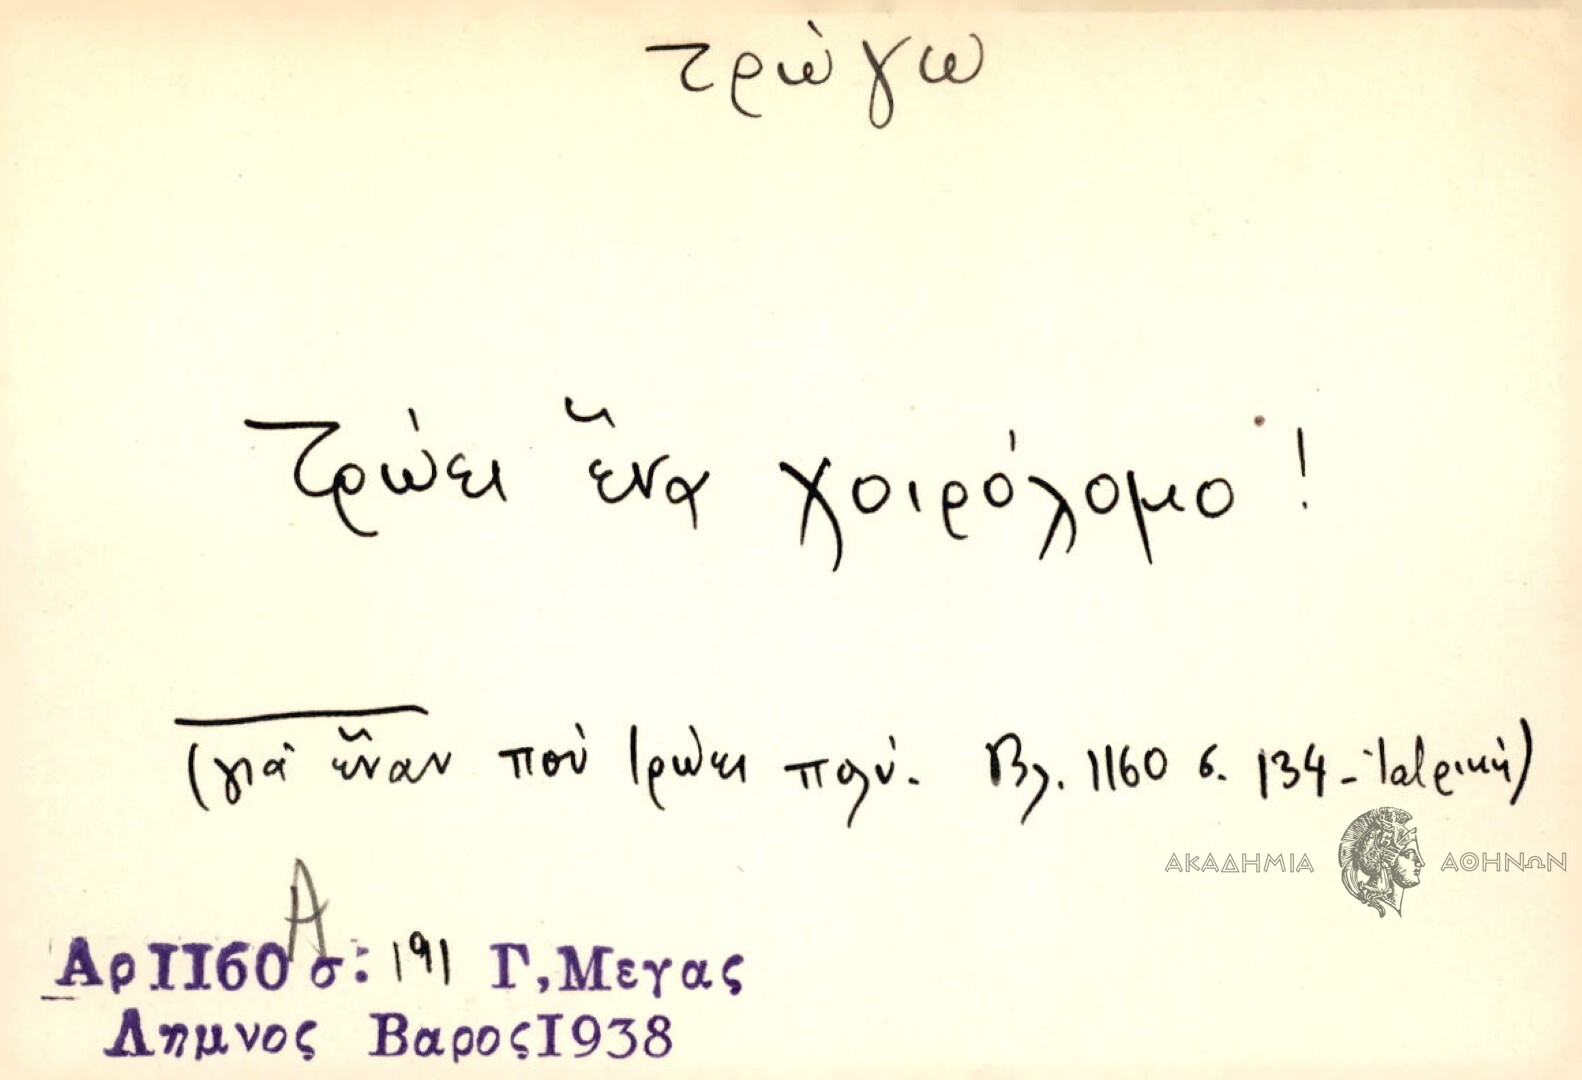 τρώγω
Τρώει ἕνα χοιρόλομο!
(γιὰ ἕναν ποὺ τρώει πολύ. Βλ. 1160 σ. 134 - Ἰατρική)
ΑΚΑΔΗΜΙΑ ΑΘΗΝΩΝ
Α
Αρ ΙΙ60 σ: 191 Γ,Μεγας
Λημνος Βαρος Ι938